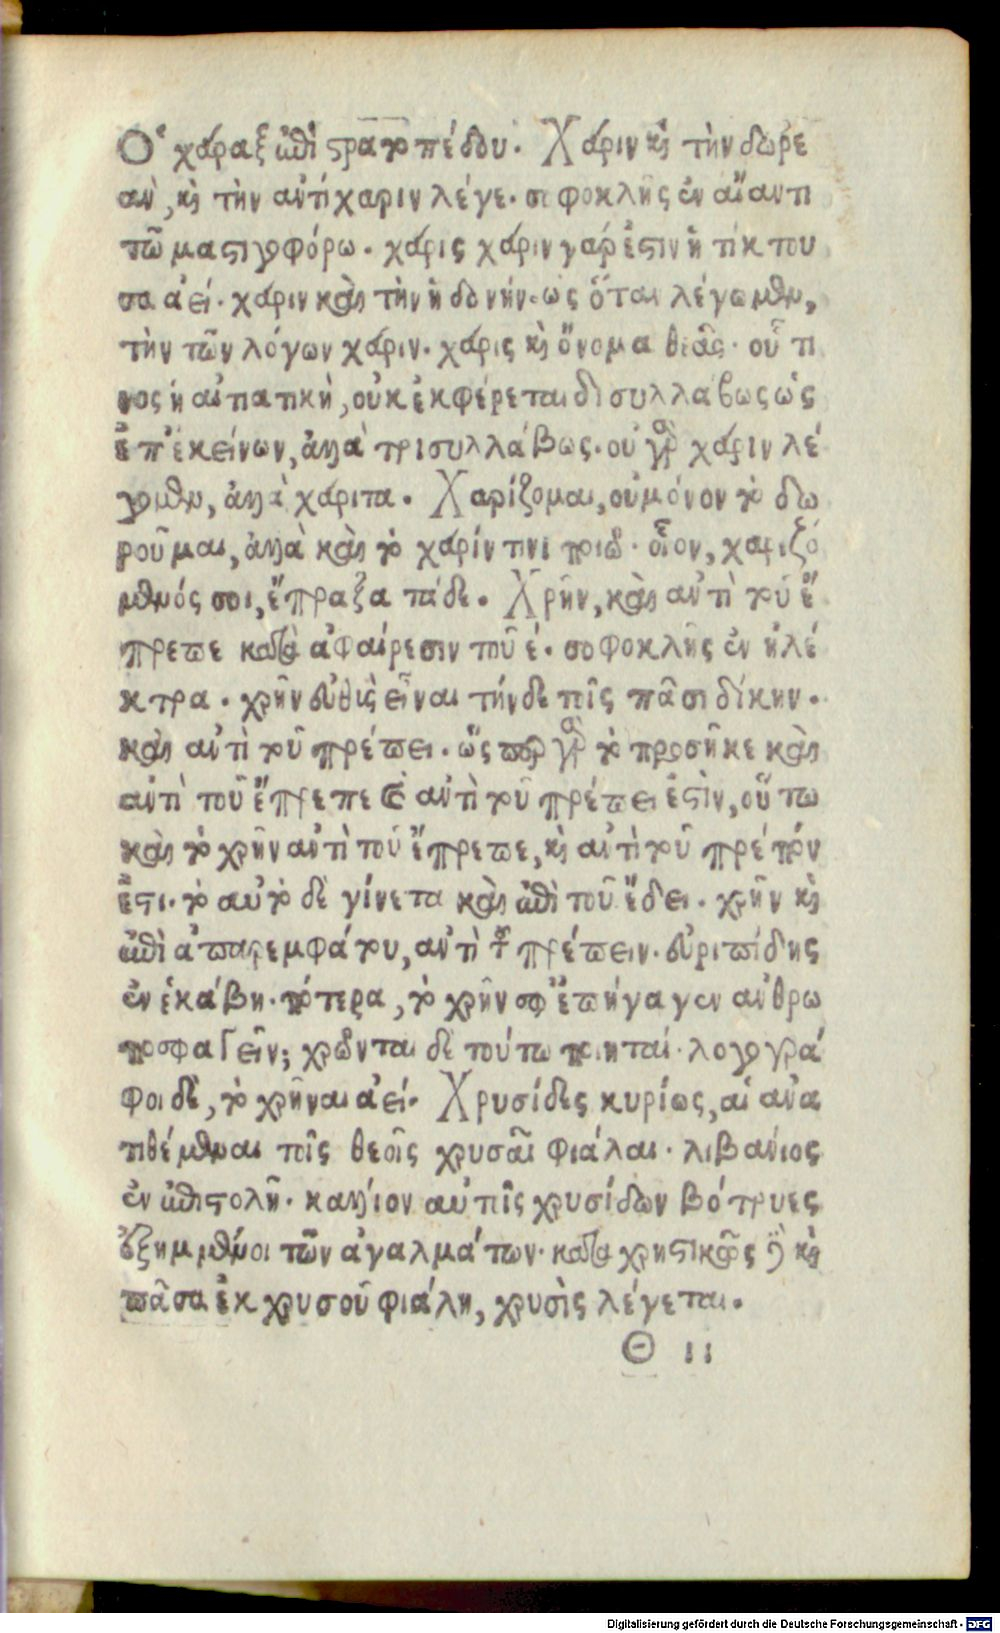 Ὁ χάραξ ἐπὶ στρατοπέδου. Χάριν καὶ τὴν δωρε
ὰν, καὶ τὴν ἀντίχαριν λέγε. σοφοκλῆς ἐν αἴαντι
τῶ μαστιγοφόρω. χάρις χάριν γάρ ἐστιν ἡ τίκτου
σα ἀεί. χάριν καὶ τὴν ἡδονήν. ὡς ὅταν λέγωμεν,
τὴν τῶν λόγων χάριν. χάρις καὶ ὄνομα θεᾶς. οὗ τι
νος ἡ αἰτιατικὴ, οὐκ ἐκφέρεται δισυλλάβως ὡς
ἐπ' ἐκείνων, ἀλλὰ τρισυλλάβως. οὐ γὰρ χάριν λέ
γομεν, ἀλλὰ χάριτα. Χαρίζομαι, οὐ μόνον τὸ δω
ροῦμαι, ἀλλὰ καὶ τὸ χάριν τινὶ ποιῶ. οἷον, χαριζό
μενός σοι, ἔπραξα τάδε. Χρῆν, καὶ ἀντὶ τοῦ ἔ
πρεπε κατὰ ἀφαίρεσιν τοῦ ἐ. σοφοκλῆς ἐν ἠλέ
κτρα. χρῆν εὐθὺς εἶναι τήνδε τοῖς πᾶσι δίκην.
καὶ ἀντὶ τοῦ πρέπει. ὥσπερ γὰρ τὸ προσῆκε καὶ
ἀντὶ τοῦ ἔπρεπε καὶ ἀντὶ τοῦ πρέπει ἐστὶν, οὕτω
καὶ τὸ χρῆν ἀντὶ τοῦ ἔπρεπε, καὶ ἀντὶ τοῦ πρέπον
ἔστι. τὸ αὐτὸ δὲ γίνεται καὶ ἐπὶ τοῦ ἔδει. χρῆν καὶ
ἐπὶ ἀπαρεμφάτου, ἀντὶ τοῦ πρέπειν. εὐριπίδης
ἐν ἑκάβη. πότερα, τὸ χρῆν σφ' ἐπήγαγεν ἀνθρω
ποσφαγεῖν; χρῶνται δὲ τούτω ποιηταί. λογογρά
φοι δὲ, τὸ χρῆναι ἀεί. Χρυσίδες κυρίως, αἱ ἀνα
τιθέμεναι τοῖς θεοῖς χρυσαῖ φιάλαι. λιβάνιος
ἐν ἐπιστολῆ. κάλλιον αὐτοῖς χρυσίδων βότρυες
ἐξημμένοι τῶν ἀγαλμάτων. καταχρηστικῶς δὲ καὶ
πᾶσα ἐκ χρυσοῦ φιάλη, χρυσὶς λέγεται.
Θ ιι
Digitalisierung gefördert durch die Deutsche Forschungsgemeinschaft - DFG